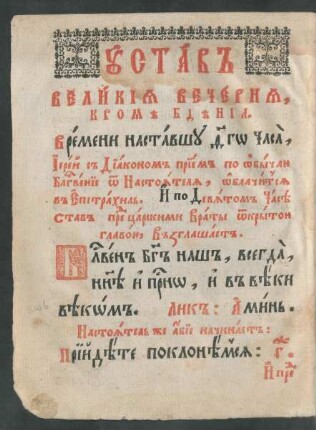 ОУСТА́ВЪ
ВЕЛИ́КІѦ ВЕЧЕ́РНѦ,
КРОМѢ̀ БДѢ́НІѦ.
Времени наста́вшу д҃гѡ часа̀,
Іере́й съ Дїа́кономъ прїи́мъ по ѻ҆бы́чаю
Бл҃гвенїе ѿ Настоѧ́телѧ, ѡ҆блачи́тсѧ
въ Епитрахи́ль. И҆ по Девѧ́томъ Часѣ̀
Ста́въ пре́дца́рскими Враты̀ ѿкры́тою
главо́ю, Възглаша́етъ.
Бл҃гослове́нъ Бг҃ъ на́шъ, всегда̀,
ны́нѣ и҆ при́сно, и҆ въ вѣ́ки
вѣкѡ́мъ. Ли́къ: А҆ми́нь.
Настоѧ́тель же а҆́бїе начина́етъ:
Прїиди́те поклони́мсѧ: г҃.
И҆ пр̾